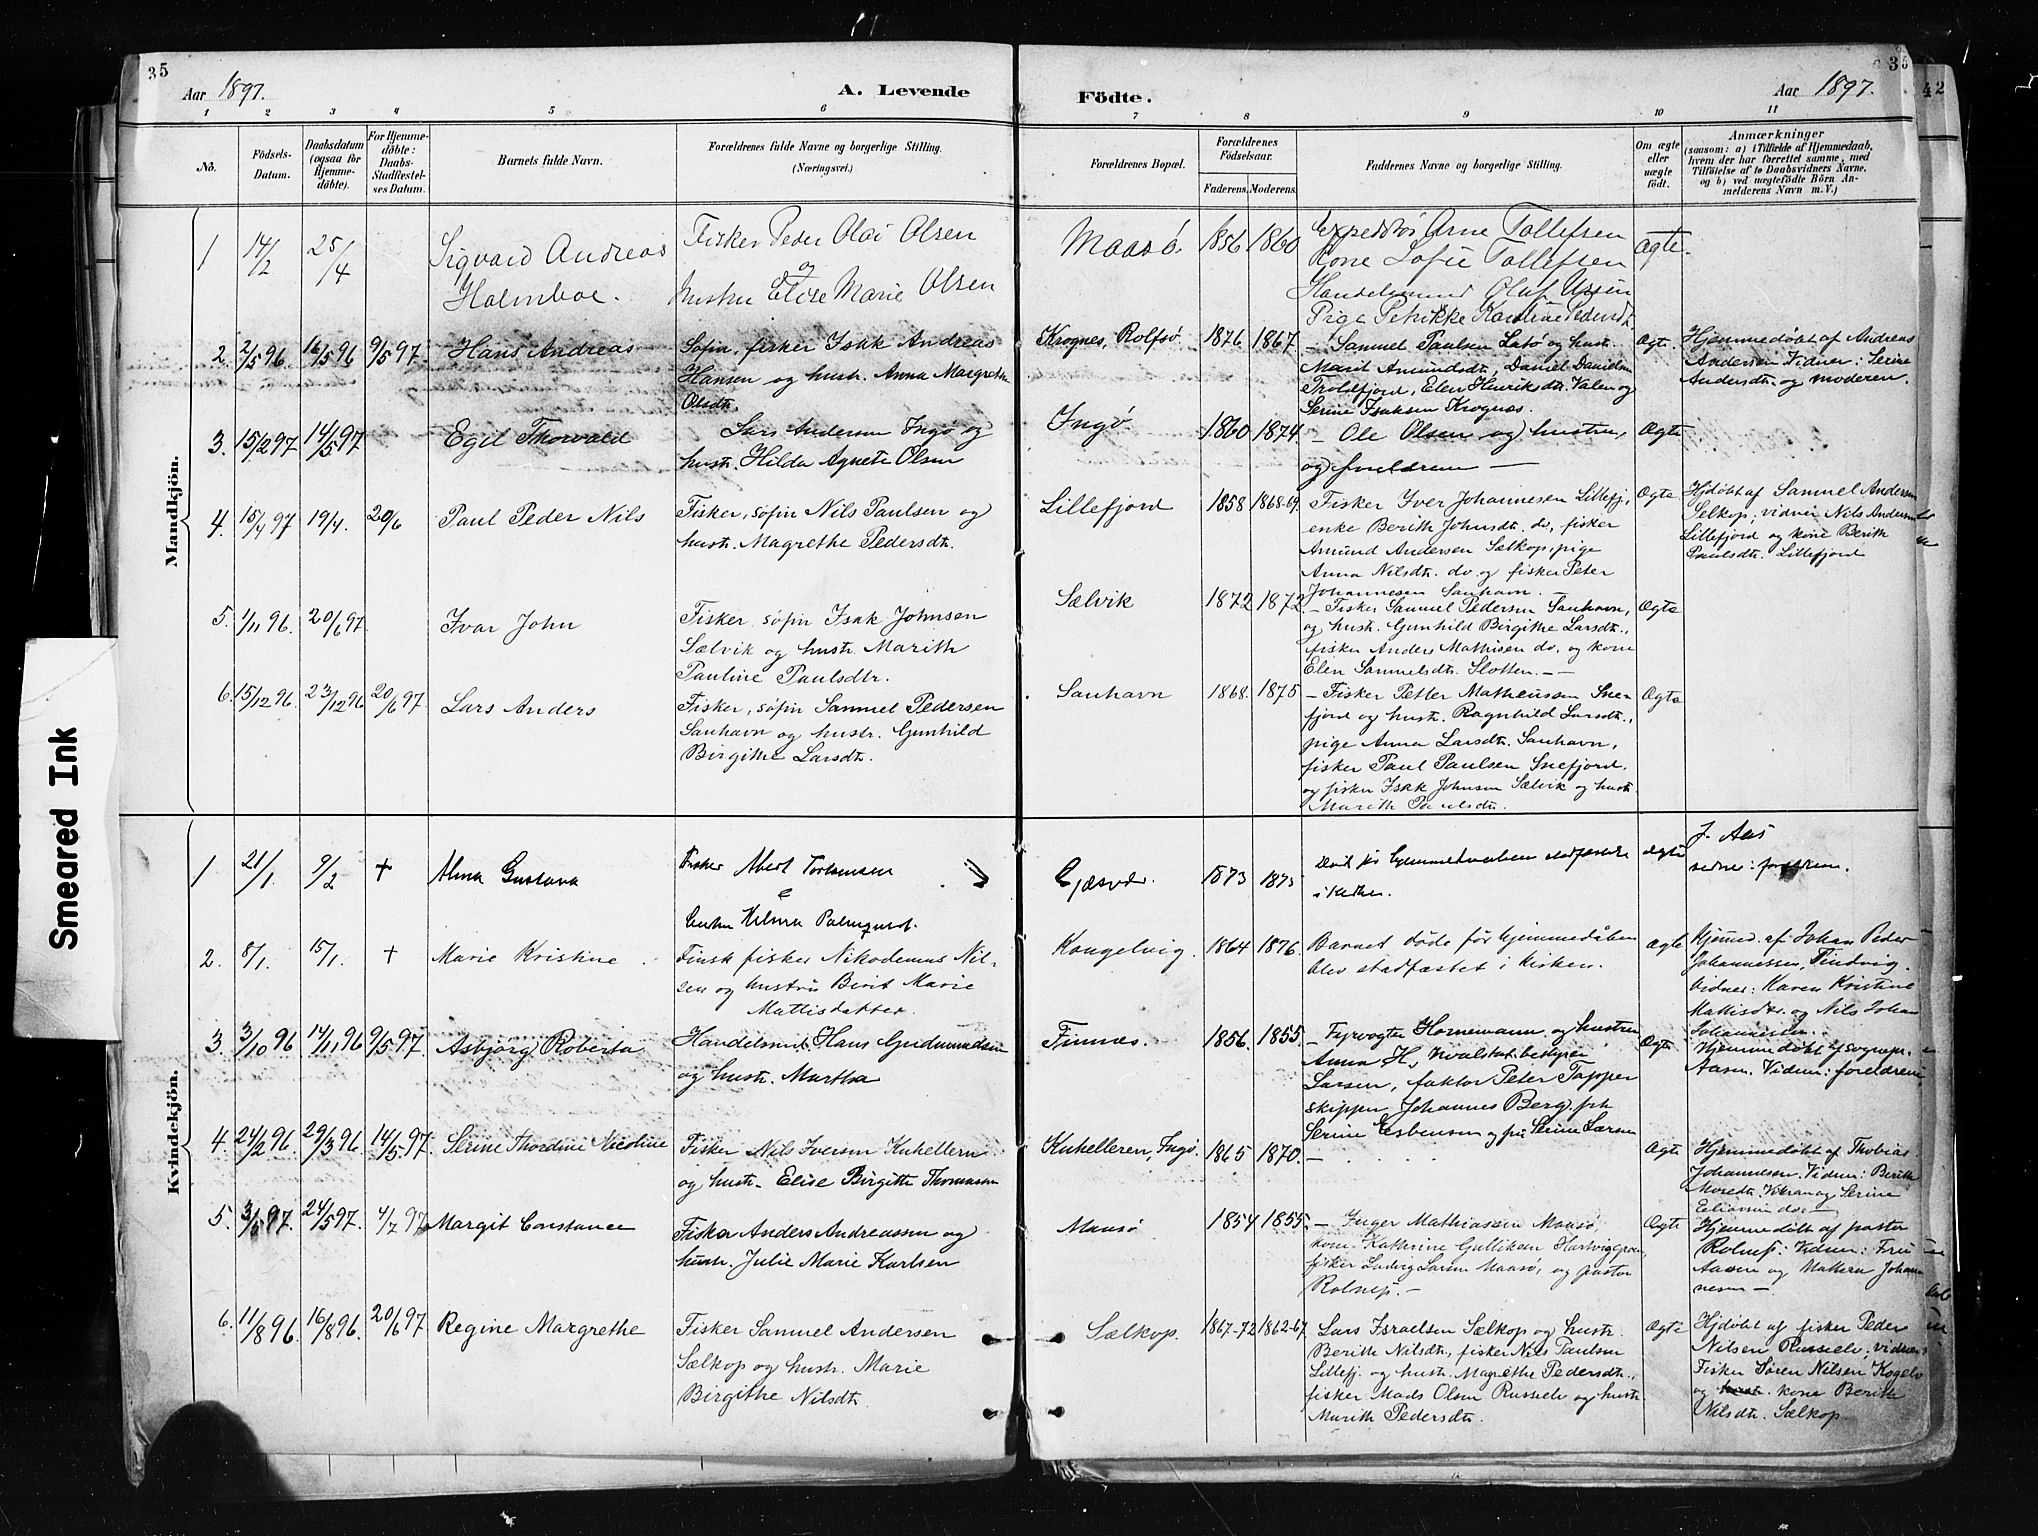 35
Aar 1897.
A. Levende
Födte.
Aar 1897.
35
42
1 2 3 4 5 6 7 8 9 10 11
No.
Födsels-
Datum.
Daabsdatum
(ogsaa for
Hjemme-
döbte).
For Hjemme-
döbte:
Daabs-
Stadfæstel-
ses Datum.
Barnets fulde Navn.
Forældrenes fulde Navne og borgerlige Stilling.
(Næringsvei.)
Forældrenes Bopæl.
Forældrenes
Födselsaar.
Faderens. Moderens.
Faddernes Navne og borgerlige Stilling.
Om ægte
eller
uægte
födt.
Anmærkninger
(saasom: a) i Tilfælde af Hjemmedaab,
hvem der har forrettet samme, med
Tilföielse af to Daabsvidners Navne,
og b) ved uægtefödte Börn An-
melderens Navn m. V.)
Mandkjön.
1 14/2 25/4
Sigvard Andreas
Holmboe.
Fisker Peder Olai Olsen
og
hustru Elise Marie Olsen
Maasö. 1856 1860
Arne Tollefsen
Kone Sofie Tollefsen
Handelsmand Olaf
Pige Petrikke
Ægte.
2. 2/5 96 16/5 96 9/5 97.
Hans Andreas
Søfin, fisker Isak Andreas
Hansen og hustr. Anna Margrethe
Olsdtr.
Krognes, Rolfsø 1876 1867
- Samuel Paulsen Latø og hust.
Marit Amundsdtr, Daniel Danielsen
Trollefjord, Elen Henriksdtr. Valen og
Serine Isaksen Krognæs.
Ægte
Hjemmedøbt af Andreas
Andersen Vidner: Serine
Andersdtr. og moderen.
3. 15/2 97 14/5 97
Egil Thorvald
Lars Andersen Ingø og
hustr. Hilda Agnete Olsen
Ingø 1860 1874
- Ole Olsen og hustru,
og forældrene -
Ægte
4. 15/4 97 19/4. 20/6
Paul Peder Nils
Fisker, søfin Nils Paulsen og
hustr. Magrethe Pedersdtr.
Lillefjord 1858 1868-69.
Fisker Iver Johannesen Lillefj,
enke Berith Johnsdtr. do, fisker
Amund Andersen Sælkop, pige
Anna Nilsdtr. do og fisker Peter
Johannesen Sanhavn.
Ægte
Hjdøbt af Samuel Andersen
Selkop, vidner Nils Andersen
Lillefjord og kone Berith
Paulsdtr. Lillefjord
5. 1/11 96. 20/6 97
Ivar John
Fisker, søfin Isak Johnsen
Sælvik og hustr. Marith
Pauline Paulsdtr.
Sælvik 1872 1872
- Fisker Samuel Pedersen Sanhavn,
og hustr. Gunhild Birgithe Larsdtr.,
fisker Anders Mathisen do, og kone
Elen Samuelsdtr. Slotten. -
Ægte
6. 15/12 96. 23/12 96 20/6 97
Lars Anders
Fisker, søfin Samuel Pedersen
Sanhavn og hustr. Gunhild
Birgithe Larsdtr.
Sanhavn 1868. 1875
- Fisker Petter Matheussen Sne-
fjord og hustr. Ragnhild Larsdtr.,
pige Anna Larsdtr. Sanhavn,
fisker Paul Paulsen Snefjord.
og fisker Isak Johnsen Sælvik og hustr.
Marith Paulsdtr.
Ægte
Kvindekjön.
1 21/1. 9/2 +
Alma Gustava
Fisker Albert Torkensen
&
Hustru Hilma Palmquist.
Gjæsvær. 1873 1875
stadfæstet
i Kirken.
ægte
J. Aas
vidne: forældrene.
2. 8/1. 15/1. +
Marie Kristine
Finsk fisker Nikodemus Nil-
sen og hustru Berit Marie
Mattisdatter
Kongelvig. 1864 1876.
Barnet døde før hjemmedåben
blev stadfæstet i kirken.
Ægte
Hjemmed. af Johan Peder
Johannessen, Tindvig.
Vidner: Karen Kristine
Mattisdtr. og Nils Johan
Johannessen.
3. 3/10 96 14/11 96 9/5 97.
Asbjørg Roberta
Handelsmd. Hans Gudmundsen
og hustr. Martha
Finnæs. 1856. 1855.
- Fyrvogter Hornemann og hustru
Anna H, hvalstat. bestyrer
Larsen, faktor Peter Tapper
skipper Johannes Berg. frk
Serine Esbensen og frk Serine Larsen
Ægte
Hjemmedøbt af sognepr.
Aasen. Vidner: foreldrene
4. 24/2 96. 29/3 96 14/5 97.
Serine Thordine Nicoline
Fisker Nils Iversen Kuhelleren
og hustr. Elise Birgitte Thomassen
Kuhelleren, Ingø. 1865 1870.
-
Ægte
Hjemmedøbt af Thobias
Johannesen. Vidner: Berith
Mosedtr. og Serine
Eliassen do. -
5. 3/5 97. 24/5 97. 4/7 97
Margit Constance
Fisker Anders Andreassen og
hustr. Julie Marie Karlsen
Maasø 1854 1855.
- Inger Mathiassen Maasø
kone Kathrine Gulliksen Hartviggroen,
fisker Ludvig Larsen Maasø, og pastor
Rolnesp. -
Ægte
Hjemmedøbt af pastor
Rolnesp: Vidner: Fru
Aasen og Mathea Johan-
nesen -
6. 11/8 96. 16/8 96. 20/6 97
Regine Margrethe
Fisker Samuel Andersen
Sælkop og hustr. Marie
Birgithe Nilsdtr.
Sælkop. 1867-72 1862-67.
Lars Israelsen Sælkop og hustr.
Berith Nilsdtr., fisker Nils Paulsen
Lillefj. og hustr. Magrethe Pedersdtr.,
fisker Mads Olsen Russelv og hustr.
Marith Pedersdtr.
Ægte
Hjdøbt af fisker Peder
Nilsen Russelv, vidner
Fisker Søren Nilsen Kogelv
og kone Berith
Nilsdtr. Sælkop.
Smeared Ink